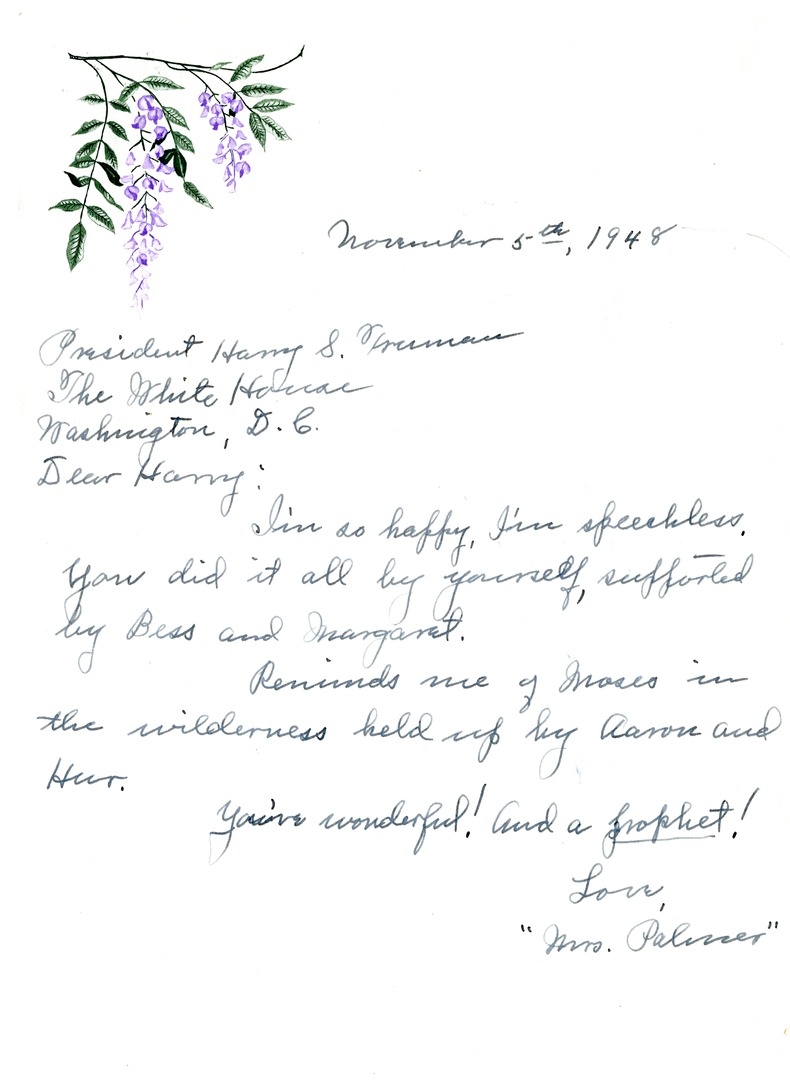 November 5th, 1948
President Harry S. Truman
The White House
Washington, D.C.
Dear Harry:
I'm so happy, I'm speechless.
You did it all by yourself, supported
by Bess and Margaret.
Reminds me of Moses in
the wilderness held up by Aaron and
Hur.
You're wonderful! And a prophet!
Love,
"Mrs. Palmer"